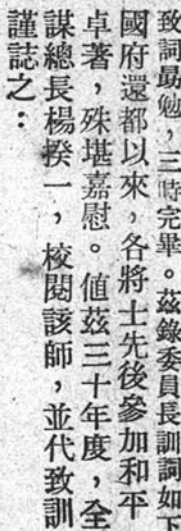 致詞勗勉，三時完畢。茲錄委員長訓詞如下
國府還都以來，各將士先後參加和平
卓著，殊堪嘉慰。値茲三十年度，全
謀總長楊揆一，校閱該師，並代致訓
謹誌之：